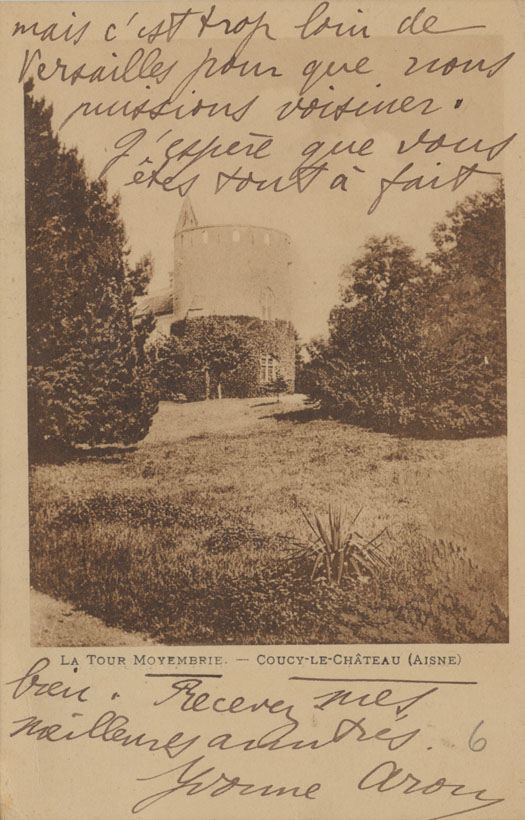 mais c'est trop loin de
Versailles pour que nous
puissions voisiner.
J'espère que vous
êtes tout à fait
LA TOUR MOYEMBRIE. — COUCY-LE-CHÂTEAU (AISNE)
bien. Recevez mes
meilleures amitiés.
6
Yvonne Aron